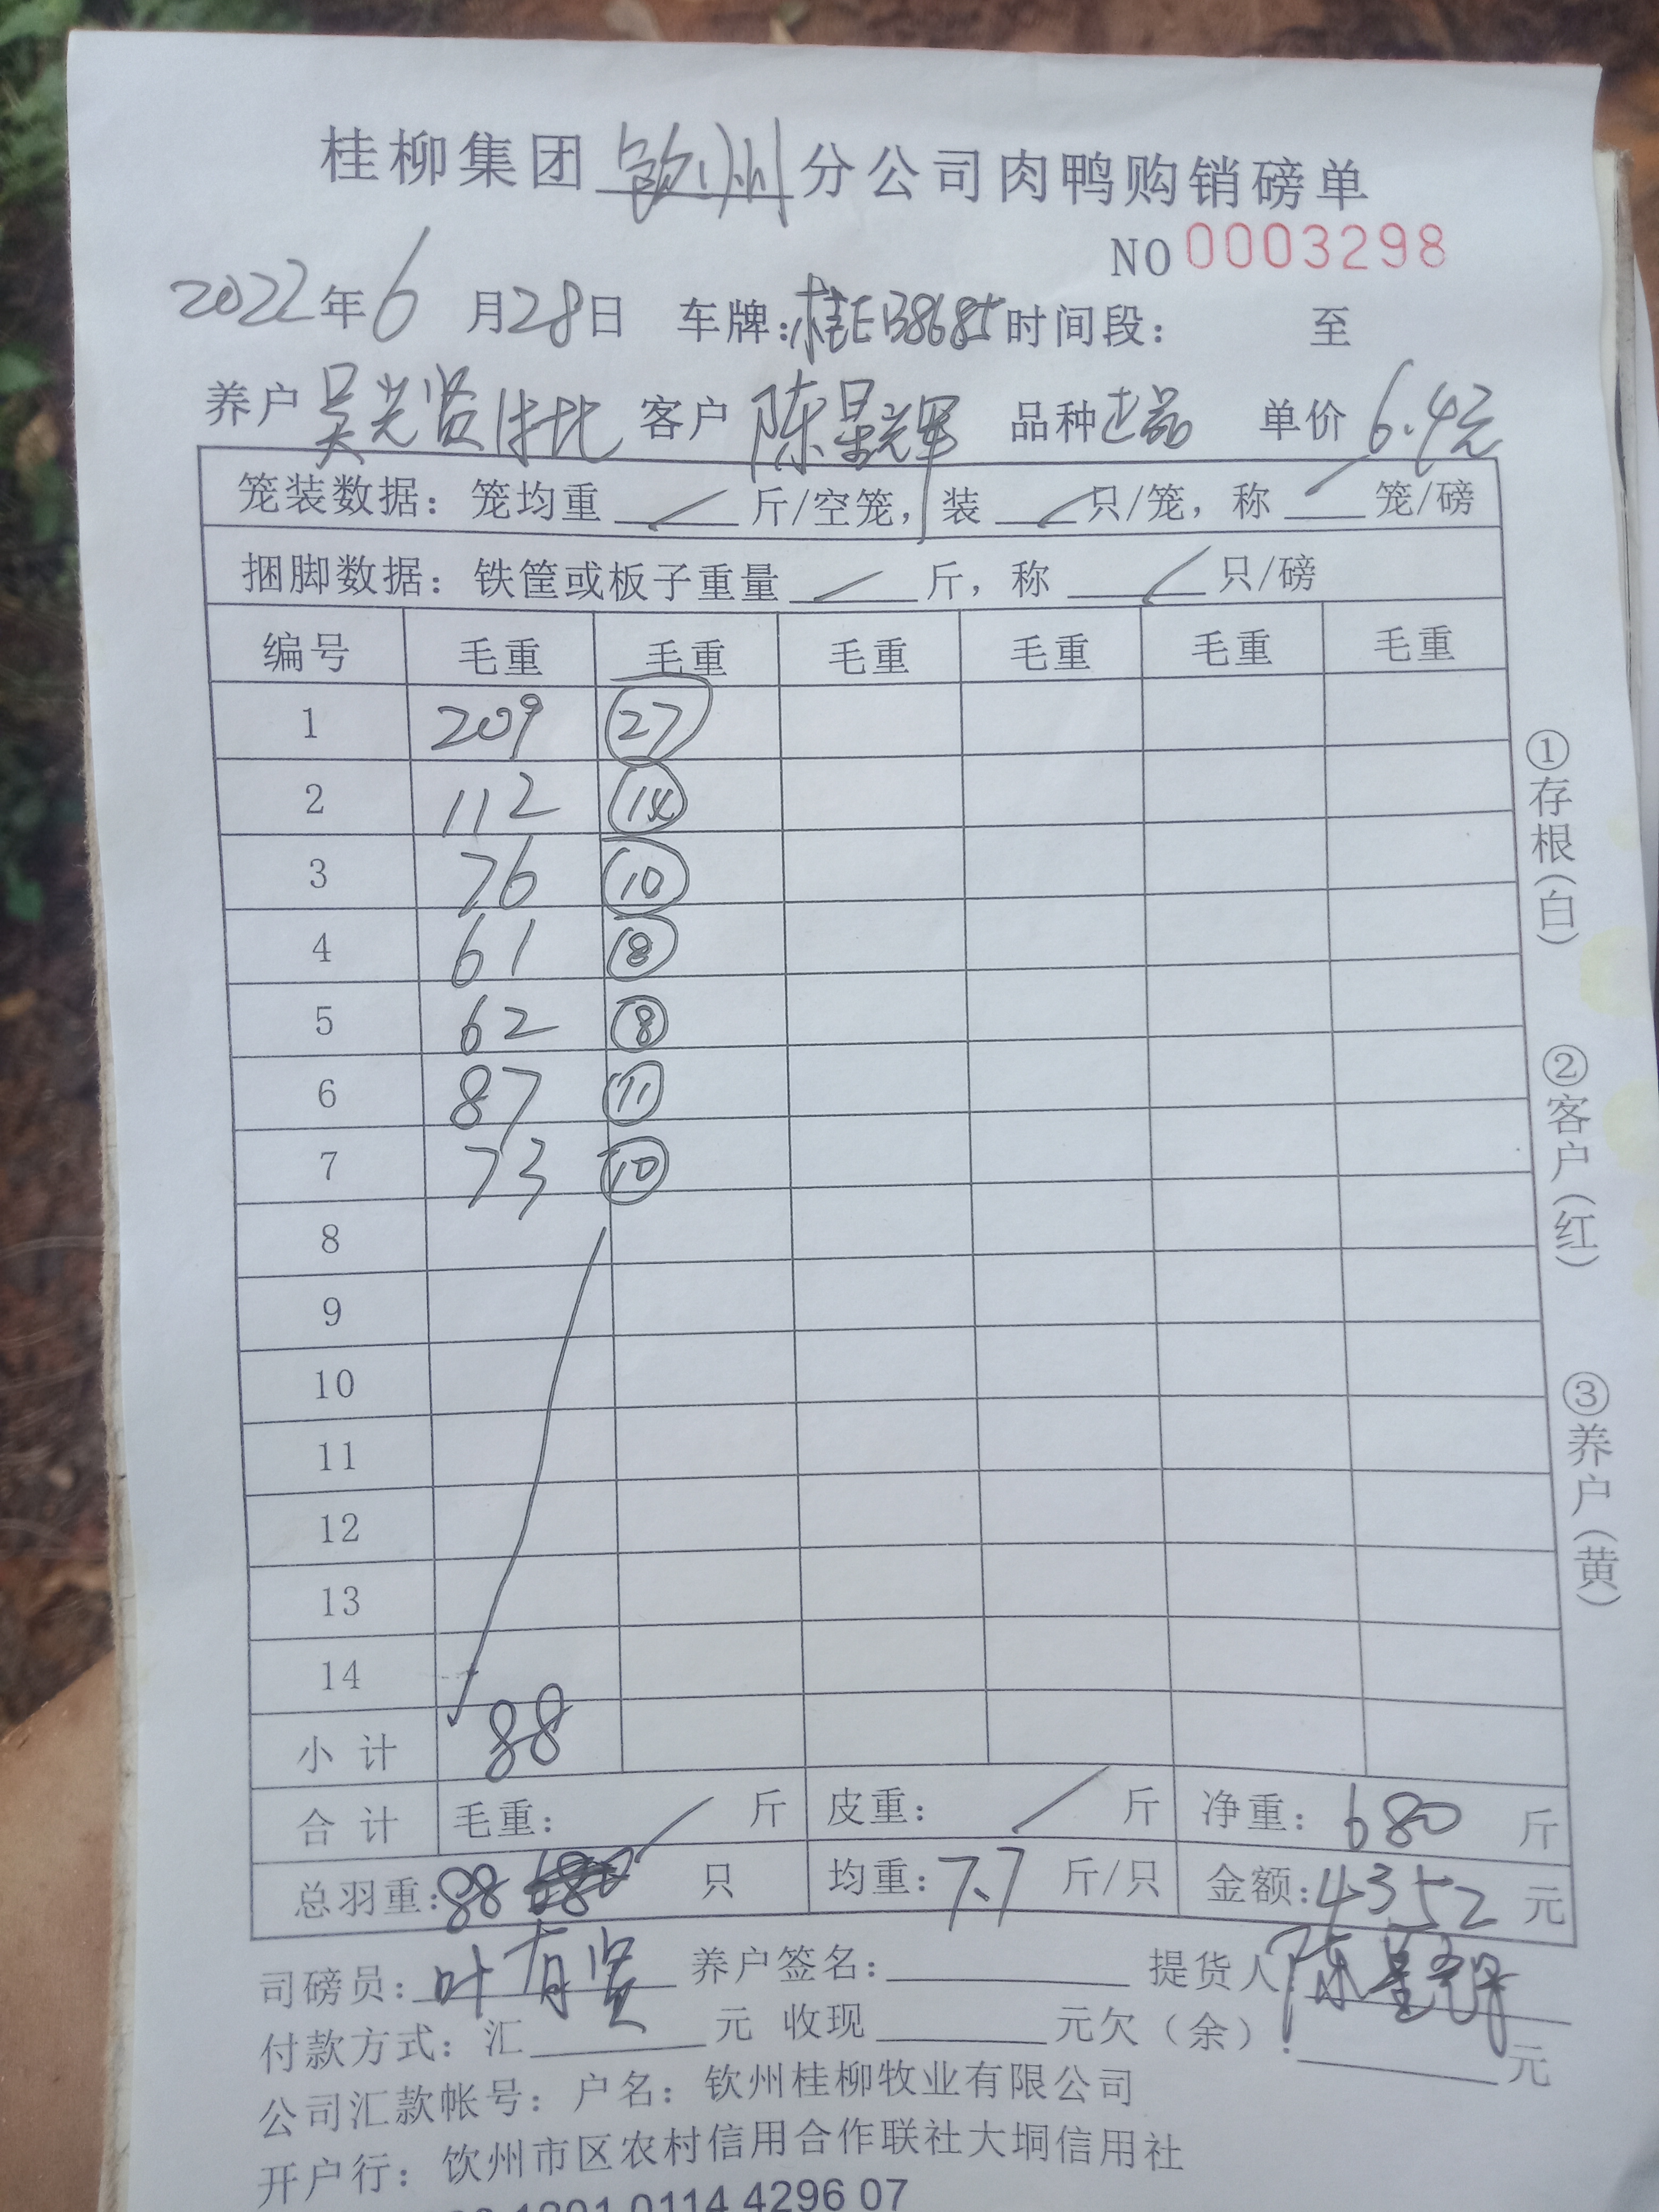 桂柳集团 钦州 分公司肉鸭购销磅单
NO 0003298
2022年 6 月 28 日 车牌：桂EB8685 时间段： 至
养户 吴光贤 客户 陈星辉 品种 正品 单价 6.4元
笼装数据：笼均重 / 斤/空笼，装 / 只/笼，称 / 笼/磅
捆脚数据：铁筐或板子重量 / 斤，称 / 只/磅
编号 毛重 毛重 毛重 毛重 毛重 毛重
1 209 27
2 112 14
3 76 10
4 61 8
5 62 8
6 87 11
7 73 10
8
9
10
11
12
13
14
小计 88
合计 毛重： / 斤 皮重： / 斤 净重：680 斤
总羽重：88 只 均重：7.7 斤/只 金额：4352 元
司磅员：叶有贤 养户签名： 提货人：陈星辉
付款方式：汇 元 收现 元欠（余）： 元
公司汇款帐号：户名：钦州桂柳牧业有限公司
开户行：钦州市区农村信用合作联社大垌信用社
1201 0114 4296 07
①存根（白）
②客户（红）
③养户（黄）